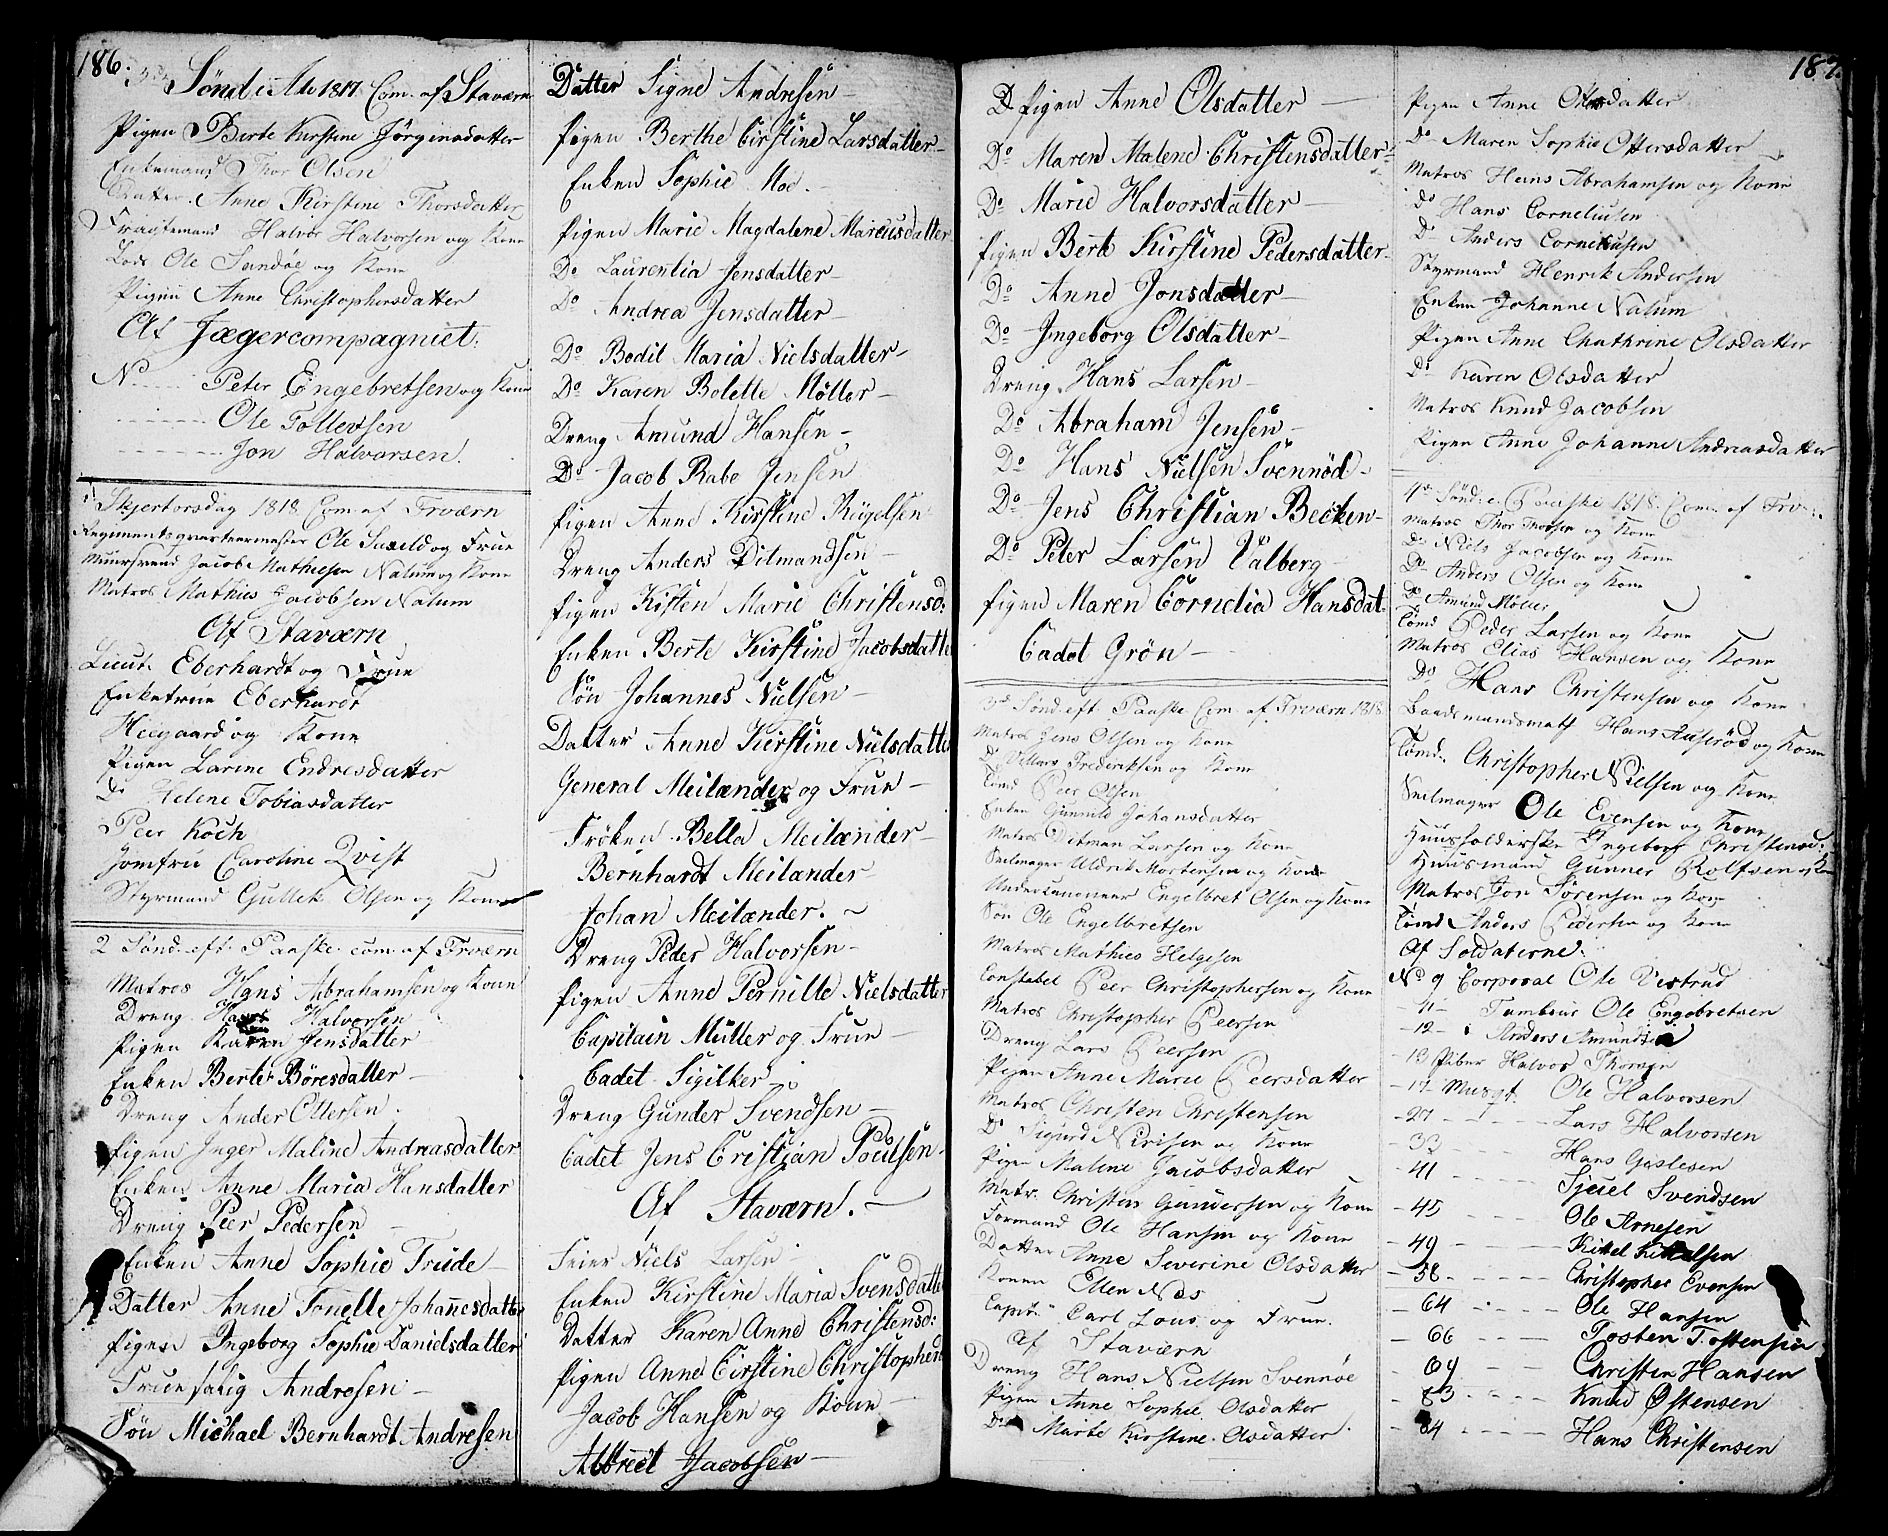 186.
Sønd. i Adv. 1817. Com. af Staværn
Pigen Berte Kirstine Jørgensdatter
Enkemand Thor Olsen
Datter Anne Kirstine Thorsdatter
Halvor Halvorsen og Kone
Lods Ole Sundöe og Kone
Pigen Anne Christophersdatter
Af Jægercompagniet.
N Peter Engebretsen og Kone
Ole Tollevsen
Jon Halvorsen.
Skjertorsdag 1818. Com. af Frværn
Regimentsqvarteermester Ole og Frue
Muursvend Jacob Mathiesen Nalum og Kone
Matros Mathies Jacobsen Nalum
Af Staværn
Lieut. Eberhardt og Frue
Enkefrue Eberhardt
Heegaard og Kone
Pigen Larine Endresdatter
Do Helene Tobiasdatter
Peer Koch
Jomfru Caroline Qvist
Styrmand Gullek Olsen og Kone
2 Sønd. eft. Paaske com. af Frværn
Matros Hans Abrahamsen og Kone
Dreng Halvorsen
Pigen Karen Jensdatter
Enken Berte Böresdatter
Dreng Ander Ottersen
Pigen Inger Maline Andreasdatter
Enken Anne Maria Hansdatter
Dreng Peer Pedersen
Enken Anne Sophie Trude
Datter Anne Tonette Johannesdatter
Pigen Ingeborg Sophie Danielsdatter
Frue salig Andresen
Søn Michael Bernhardt Andresen
Datter Signe Andresen
Pigen Berthe Cirstine Larsdatter
Enken Sophie Moe.
Pigen Marie Magdalene Marcusdatter
Do Laurentia Jensdatter
Do Andrea Jensdatter
Do Bodil Maria Nielsdatter
Do Karen Bolette Möller
Dreng Amund Hansen
Do Jacob Rabe Jensen
Pigen Anne Kirstine Rügelsen
Dreng Anders Ditmandsen
Pigen Kisten Marie Christensd:
Enken Berte Kirstine Jacobsdatte
Søn Johannes Nielsen
Datter Anne Kirstine Nielsdatte
General Meilænder og Frue
Frøken Bella Meilænder
Bernhardt Meilander
Johan Meilænder.
Dreng Peder Halvorsen
Pigen Anne Pernille Nielsdatter
Capitain Müller og Frue
Cadet Sigilker
Dreng Gunder Svendsen
Cadet Jens Cristian Poulsen
Af Staværn.
Feier Niels Larsen
Enken Kirstine Maria Svensdatte
Datter Karen Anne Christensd:
Pigen Anne Cirstine Christophers
Jacob Hansen og Kone
Albrect Jacobsen
187.
Pigen Anne Olsdatter
Do Maren Malene Christensdatter
Do Marie Halvorsdatter
Pigen Berte Kirstine Pedersdatter
Do Anne Jonsdatter
Do Ingeborg Olsdatter
Dreng Hans Larsen
Do Abraham Jensen
Do Hans Nielsen Svennöd
Do Jens Christian Becken
Do Peter Larsen Valberg
Pigen Maren Cornelia Hansdat.
Cadet Grön
3die Sønd. eft. Paaske Com. af Frværn 1818
Matros Jens Olsen og Kone
Do Frederiksen og Kone
Tömd Peer Olsen
Enken Gunnild Johansdatter
Matros Ditman Larsen og Kone
Seilmager Uldrik Mortensen og Kone
Undercanoneer Engelbret Olsen og Kone
Søn Ole Engelbretsen
Matros Mathies Helgesen
Constabel Peer Christophersen og Kone
Matros Christopher Peersen
Dreng Lars Peersen
Pigen Anne Marie Peersdatter
Matros Christen Christensen
Do Sigurd Nirisen og Kone
Pigen Maline Jacobsdatter
Matr. Christen Gundersen og Kone
Formand Ole Hansen og Kone
Datter Anne Severine Olsdatter
Konen Ellen Næs
Capit. Carl Lous og Frue.
Af Staværn
Dreng Hans Nielsen Svennöe
Pigen Anne Sophie Olsdatter
Do Marte Kirstine Olsdatter
Pigen Anne Olsdatter
Do Maren Sophie Ottersdatter
Matros Hans Abrahamsen og Kone
Do Hans Corneliusen
Do Anders Corneliusen
Styrmand Henrik Andersen
Enken Johanne Nalum
Pigen Anne Chathrine Olsdatter
Do Karen Olsdatter
Matros Knud Jacobsen
Pigen Anne Johanne Andreasdatter
4de Sønd. e. Paaske 1818. Com. af Frv
Matros Thor Thorsen og Kone
Do Niels Jacobsen og Kone
Do Anders Olsen og Kone
Do Amund Möller
Tömd Peder Larsen og Kone
Matros Elias Hansen og Kone
Do Hans Christensen og Kone
Baadsmandsmath Hans Aaseröd og Kone
Tömd. Christopher Nielsen og Kone
Seilmager Ole Evensen og Kone
Huusholderske Ingeborg Christensd.
Huusmand Gunner Rolfsen og K
Matros Jon Sørensen og Kone
Tömd Anders Pedersen og Kone
Af Soldaterne.
No 9 Corporal Ole Vestrud
- 11 - Tambour Ole Engebretsen
- 12 - Anders Amundsen
- 13 Piber Halvor Thorsen
- 17 Musqt. Ole Halvorsen
- 27 - Lars Halvorsen
- 33 Hans Gislesen
- 41 Sjuel Svendsen
- 45 Ole Arnesen
- 49 Kittel Kittelsen
- 58 Christopher Evensen
- 64 Ole Hansen
- 66 Tosten Tostensen
- 69 Christen Hansen
- 83 Knud Østensen
- 84 Hans Christensen